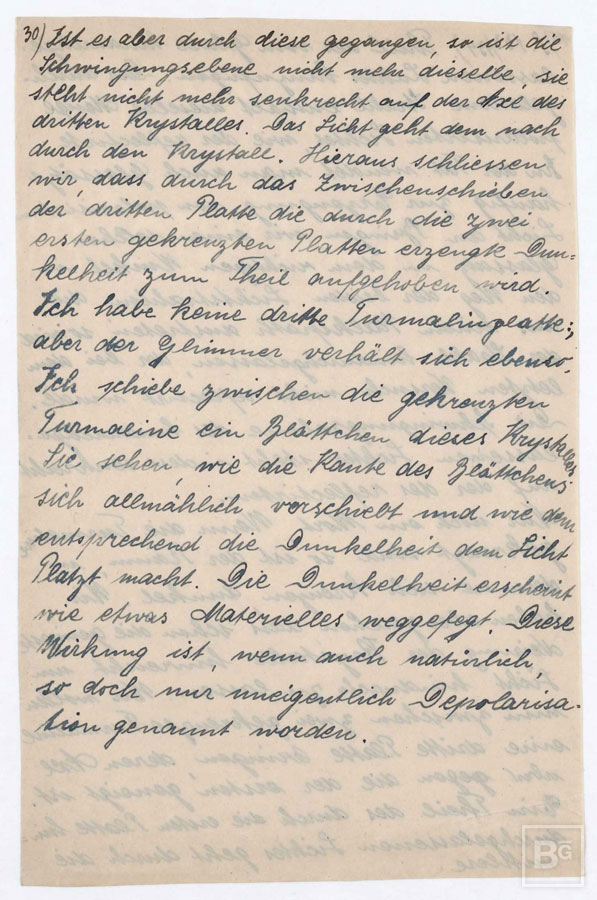 30) Ist es aber durch diese gegangen, so ist die
Schwingungsebene nicht mehr dieselbe, sie
steht nicht mehr senkrecht auf der Axe des
dritten Krystalles. Das Licht geht dem nach
durch den Krystall. Hieraus schliessen
wir, dass durch das Zwischenschieben
der dritten Platte die durch die zwei
ersten gekreuzten Platten erzeugte Dun=
kelheit zum Theil aufgehoben wird.
Ich habe keine dritte Turmalinplatte;
aber der Glimmer verhält sich ebenso.
Ich schiebe zwischen die gekreuzten
Turmaline ein Blättchen dieses Krystalles
Sie sehen, wie die Kante des Blättchens
sich allmählich vorschiebt und wie dem
entsprechend die Dunkelheit dem Licht
Platzt macht. Die Dunkelheit erscheint
wie etwas Materielles weggefegt. Diese
Wirkung ist, wenn auch natürlich,
so doch nur uneigentlich Depolarisa-
tion genannt worden.
BG